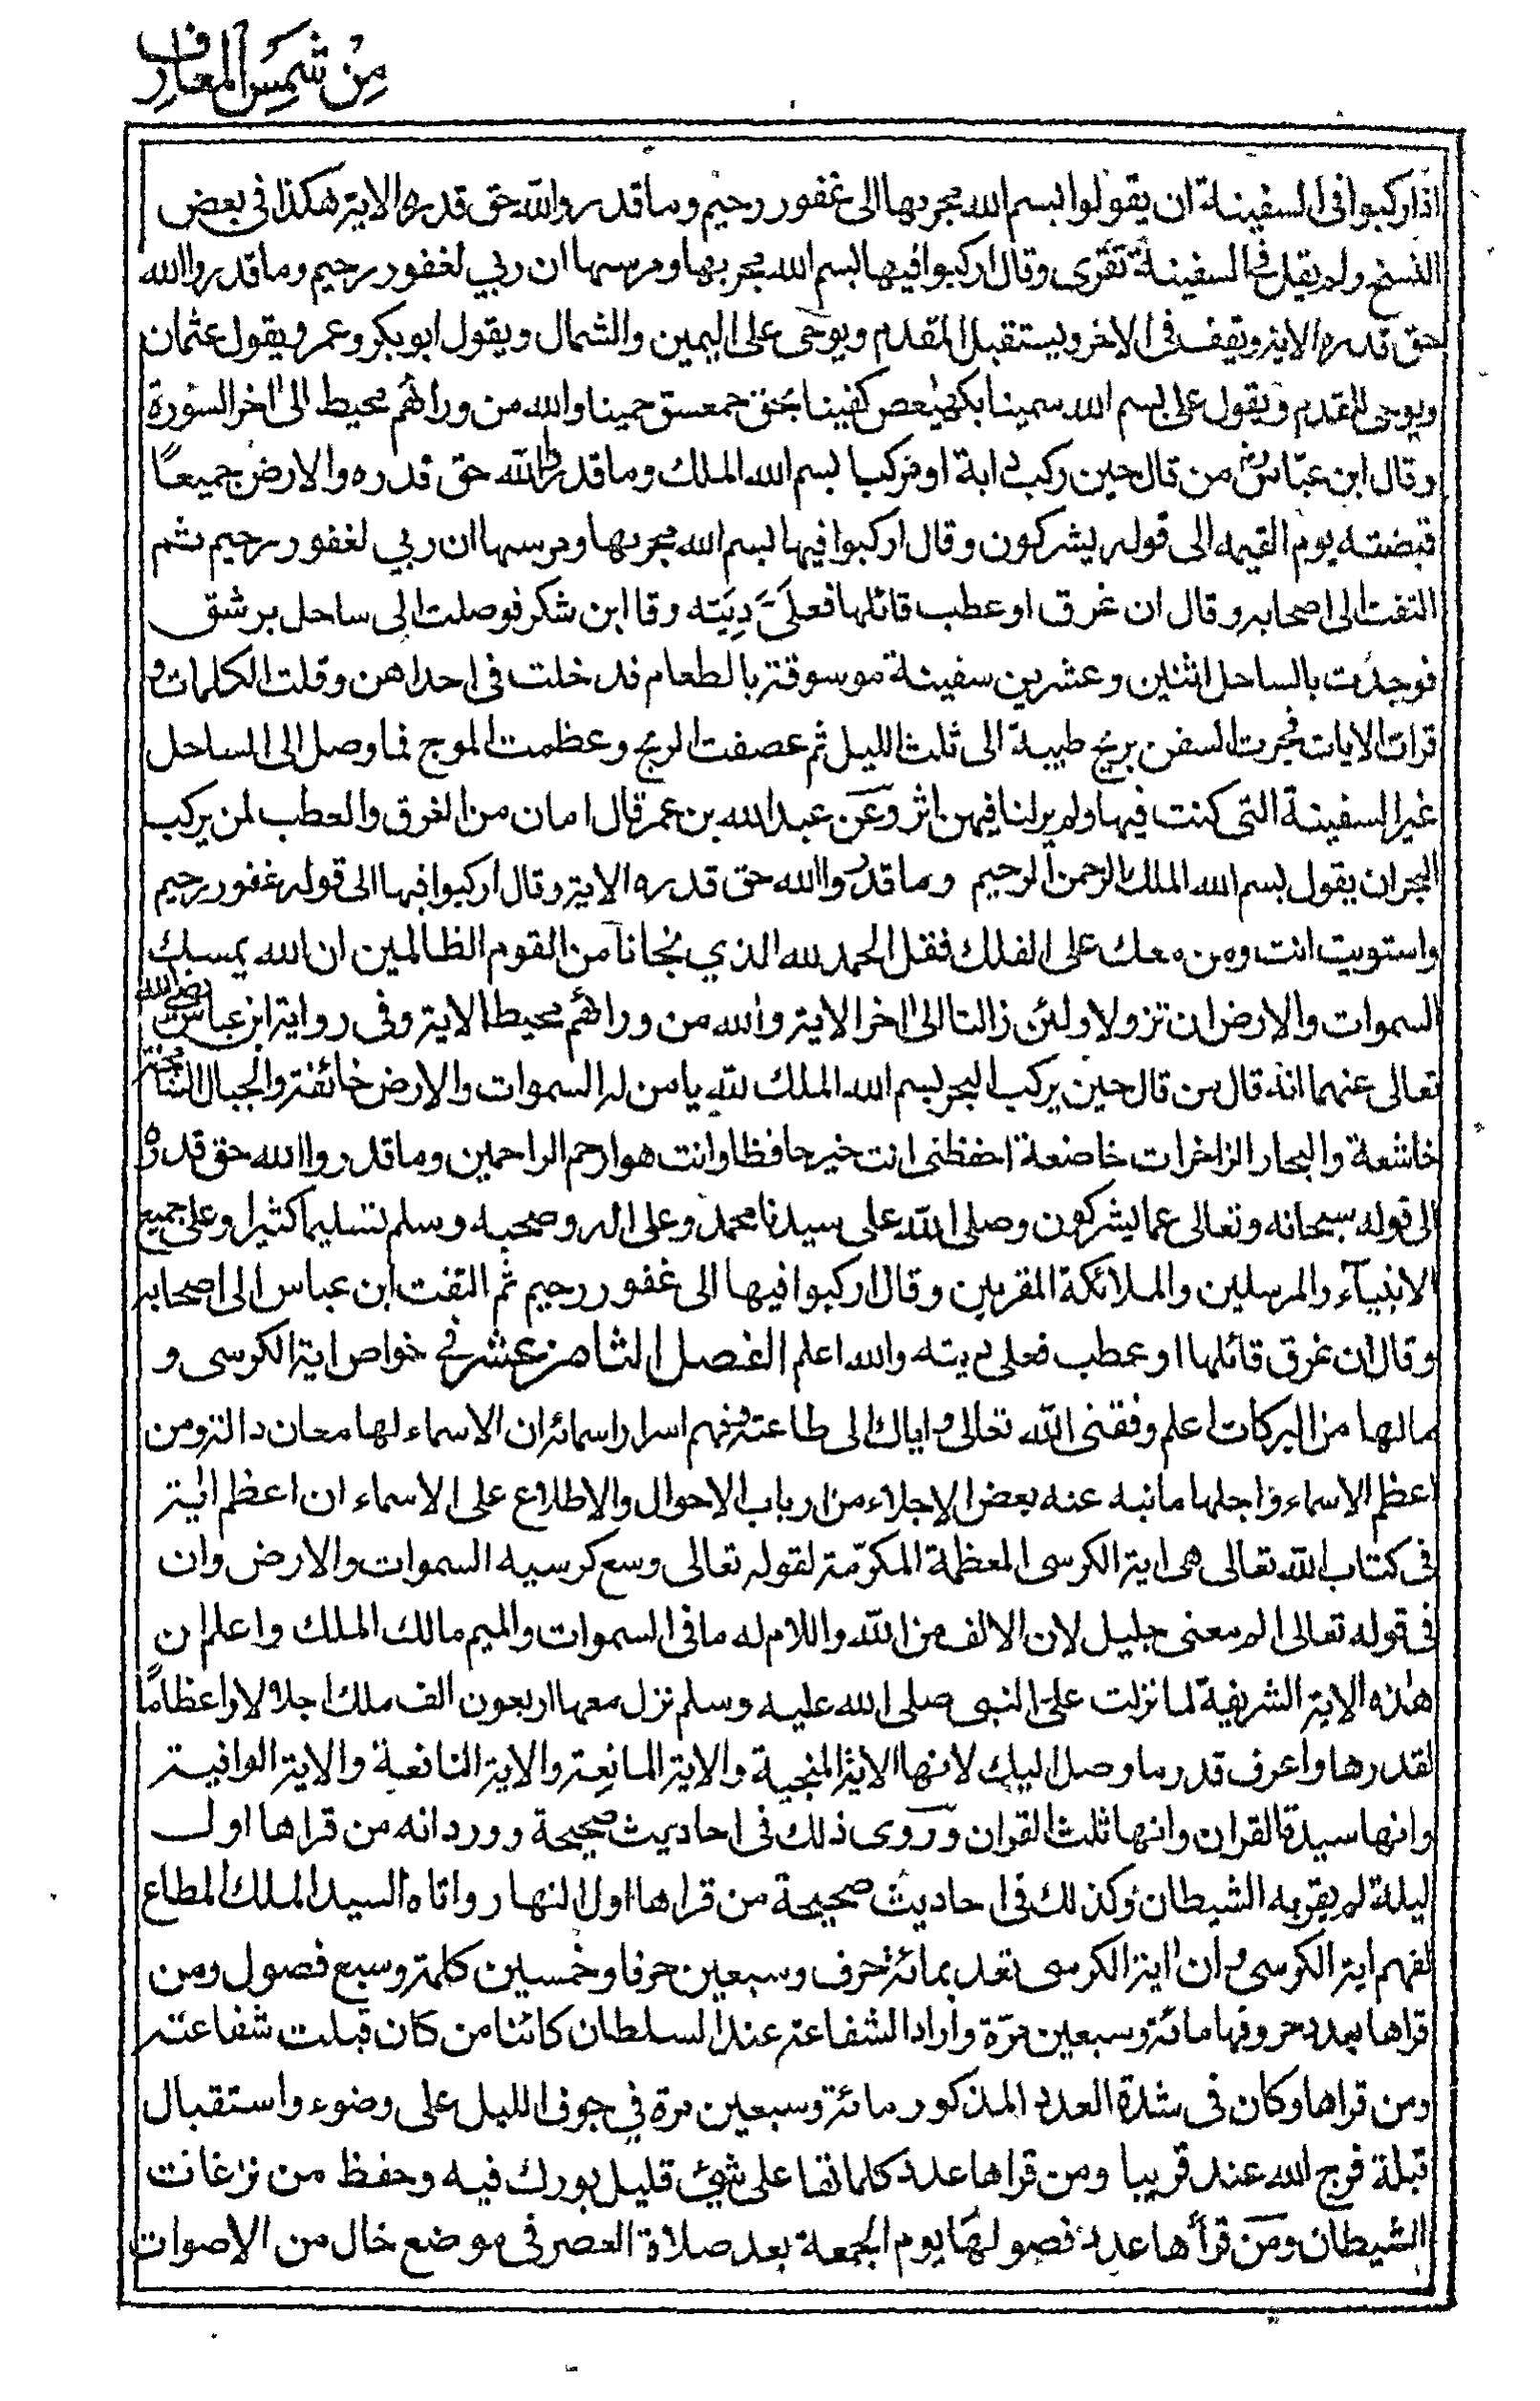 من شمس المعارف
اذا ركبوا فى السفينة ان يقولوا بسم الله مجريها الى غفور رحيم وما قدروا الله حق قدره الاية هكذا فى بعض
النسخ ولم يقل فى السفينة تقرى وقال اركبوا فيها بسم الله مجريها ومرسها ان ربي لغفور رحيم وما قدروا الله
حق قدره الاية وتقف فى الاخر ويستقبل المقدم ويوحى على اليمين والشمال ويقول ابوبكر وعمر ويقول عثمان
ويوحى للمقدم ويقول على بسم الله سمينا بكهيعص كفينا بحق حمعسق حمينا والله من ورائهم محيط الى اخر السورة
وقال ابن عباس رض من قال حين ركب دابة او مركبا بسم الله الملك وما قدروا الله حق قدره والارض جميعًا
قبضته يوم القيمه الى قوله يشركون وقال اركبوا فيها بسم الله مجريها ومرسها ان ربي لغفور رحيم ثم
التفت الى اصحابه وقال ان غرق او عطب قائلها فعلَىَّ دِيَته وقا ابن شكر فوصلت الى ساحل برشق
فوجدت بالساحل اثنين وعشرين سفينة موسوقة بالطعام فدخلت فى احداهن وقلت الكلمات و
قرات الايات فجرت السفن بريح طيبة الى ثلث الليل ثم عصفت الريح وعظمت الموج فما وصل الى الساحل
غير السفينة التى كنت فيها ولم ير لنا فيهن اثر وعن عبد الله بن عمر قال امان من الغرق والعطب لمن يركب
البحر ان يقول بسم الله الملك الرحمن الرحيم وما قدروا الله حق قدره الاية وقال اركبوا فيها الى قوله غفور رحيم
واستويت انت ومن معك على الفلك فقل الحمد لله الذي نجانا من القوم الظالمين ان الله يمسك
السموات والارض ان تزولا ولئن زالتا الى اخر الاية والله من ورائهم محيط الاية وفى رواية ابن عباس رضي الله
تعالى عنهما انه قال من قال حين يركب البحر بسم الله الملك لله يا من له السموات والارض خائفة والجبال الشامخة
خاشعة والبحار الزاخرات خاضعة احفظنى انت خير حافظا وانت هو ارحم الراحمين وما قدروا الله حق قدره
الى قوله سبحانه وتعالى عما يشركون وصلى الله على سيدنا محمد وعلى اله وصحبه وسلم تسليما كثيرا وعلى جميع
الانبيآء والمرسلين والملائكة المقربين وقال اركبوا فيها الى غفور رحيم ثم التفت ابن عباس الى اصحابه
وقال ان غرق قائلها او عطب فعلى ديته والله اعلم الفصل الثامن عشر في خواص اية الكرسى و
مالها من البركات اعلم وفقنى الله تعالى واياك الى طاعته وفهم اسرار اسمائه ان الاسماء لها معان دالة ومن
اعظم الاسماء واجلها ما نبه عنه بعض الاجلاء من ارباب الاحوال والاطلاع على الاسماء ان اعظم اية
فى كتاب الله تعالى هى اية الكرسى المعظمة المكرّمة لقوله تعالى وسع كرسيه السموات والارض وان
فى قوله تعالى الم معنى جليل لان الالف من الله واللام له ما فى السموات والميم مالك الملك واعلم ان
هذه الاية الشريفة لما نزلت على النبى صلى الله عليه وسلم نزل معها اربعون الف ملك اجلالا واعظامًا
لقدرها واعرف قدر ما وصل اليك لانها الاية المنجية والاية المانعة والاية النافعة والاية الوافية
وانها سيدة القران وانها ثلث القران وروى ذلك فى احاديث صحيحة وورد انه من قراها اول
ليلة لم يقربه الشيطان وكذلك فى احاديث صحيحة من قراها اول النهار واتاه السيد الملك المطاع
لفهم اية الكرسى وان اية الكرسى تعد بمائة حرف وسبعين حرفا وخمسين كلمة وسبع فصول ومن
قراها بعدد حروفها مائة وسبعين مرّة واراد الشفاعة عند السلطان كائنا من كان قبلت شفاعته
ومن قراها وكان فى شدة العدد المذكور مائة وسبعين مرة في جوف الليل على وضوء واستقبال
قبلة فرج الله عنه قريبا ومن قراها عدد كلماتها على شئ قليل بورك فيه وحفظ من نزغات
الشيطان ومن قرأها عدد فصولها يوم الجمعة بعد صلاة العصر فى موضع خال من الاصوات